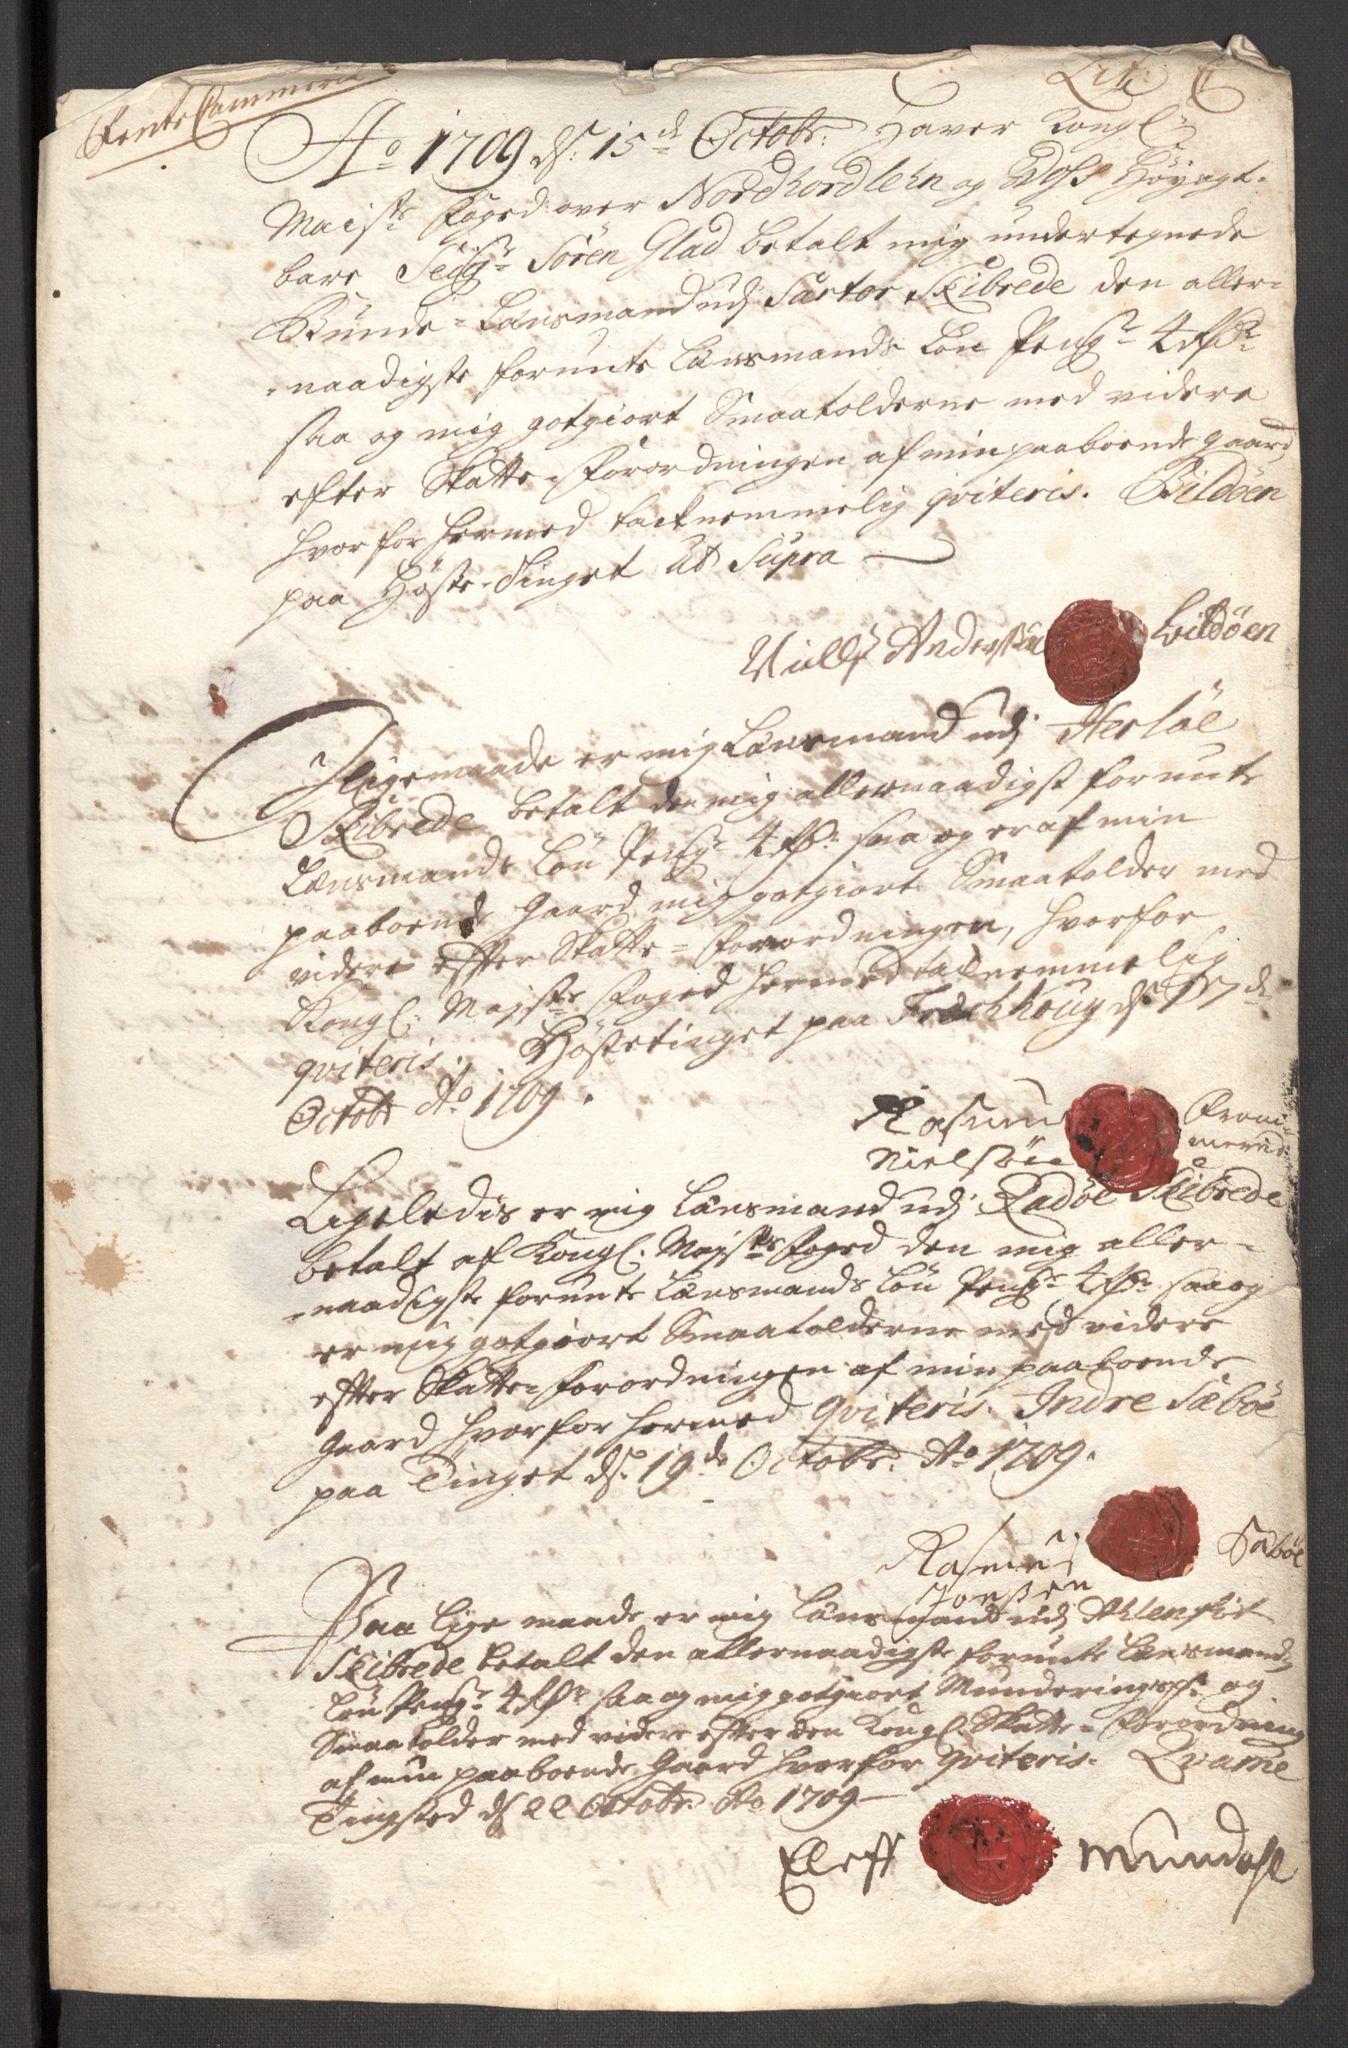 Rente Cammerit
Lit: C
Ao 1709 d: 15de Octobr: Haver Kongl:
Maists Foged over Nordhordlehn og Voss Höyagt-
bare Seigr Sören Glad betalt mig undertegnede
Bunde-Lænsmand udj Sartor Skibrede den aller-
naadigste forunte Lænsmands Lön Penge 4 Rdr
saa og mig gotgiort Smaatolderne med videre
efter Skatte-Forordningen af min paaboende gaard,
hvorfor hermed tacknemmelig qviteris. Bildöen
paa Höste-Tinget ut Supra
Niells Andersen Bildöen
Iligemaade er mig Lænsmand udj Herlöe
Skibrede betalt de mig allernaadigst forunte
Lænsmands Lön Penge 4 Rdr: saa og er af min
paaboende Gaard mig gotgiort Smaatolder med
videre effter Skatte-Forordningen, hvorfor
Kongl: Majsts Foged hermed tacknemmelig
qviteris. Höstetinget paa Fræchhoug ds: 17de
Octobr Ao 1709.
Rasmus
Nielsön
Ligeledis er mig Lænsmand udj Radöe Skibrede
betalt af Kongl. Majsts Foged den mig aller-
naadigste forunte Lænsmands Lön Penge 4 Rdr saa og
er mig gotgiort Smaatolderne med videre
effter Skatte-Forordningen af min paaboende
Gaard hvorfor hermed qviteris. Indre Sæböe
paa Tinget ds. 19de Octobr. Ao 1709.
Rasmus Sæböe
Jonsen
Paa lige maade er mig Lænsmand udj Ahlenfit
Skibrede betalt den allernaadigste forunte Lænsmands
Lön Penge 4 Rdr saa og mig gotgiort Munderings og
Smaatolder med videre effter den Kongl. Skatte-Forordning
af min paaboende Gaard hvorfor qviteris. Qvame
Tingsted ds 22 Octobr. Ao 1709
Eleff Mundahl